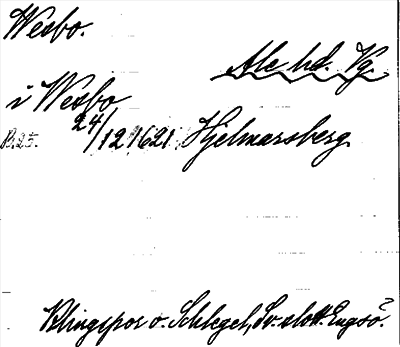 Wesbo.
Ale hd. Vg.
i Wesbo
B.25. 24/12 1621 Hjelmarsberg
Klingspor o. Schlegel, Sv. slott. Engsö?